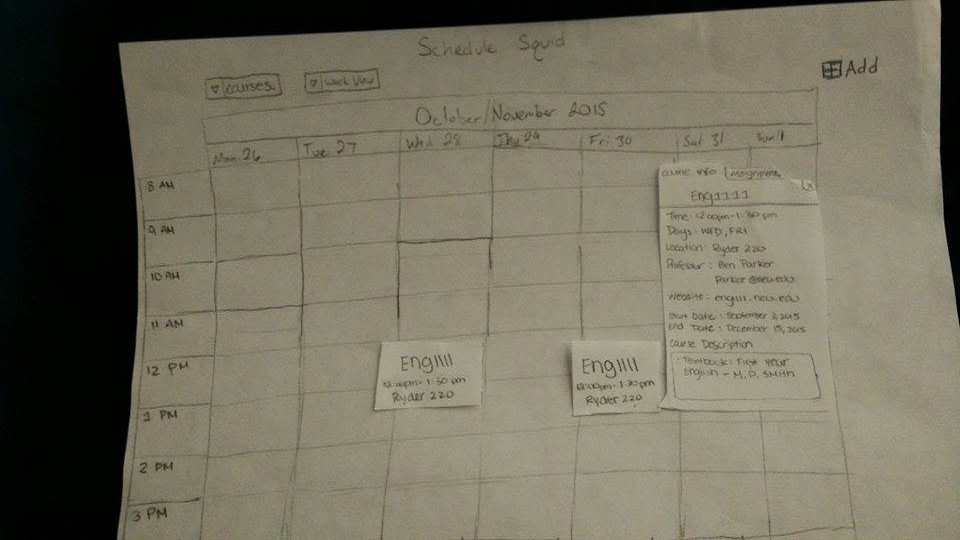 Schedule Squid
Courses
Week View
Add
October/November 2015
Mon 26
Tue 27
Wed 28
Thu 29
Fri 30
Sat 31
Sun 1
8 AM
9 AM
10 AM
11 AM
12 PM
1 PM
2 PM
3 PM
Eng1111
12:00pm-1:30 pm
Ryder 220
Eng1111
12:00pm-1:30pm
Ryder 220
Course info
Assignments
x
Eng1111
Time: 12:00pm-1:30 pm
Days: WED, FRI
Location: Ryder 220
Professor: Ben Parker
Parker@neu.edu
Website: eng1111.neu.edu
Start Date: September 3, 2015
End Date: December 15, 2015
Course Description
Textbook: First Year
English - M.D. Smith